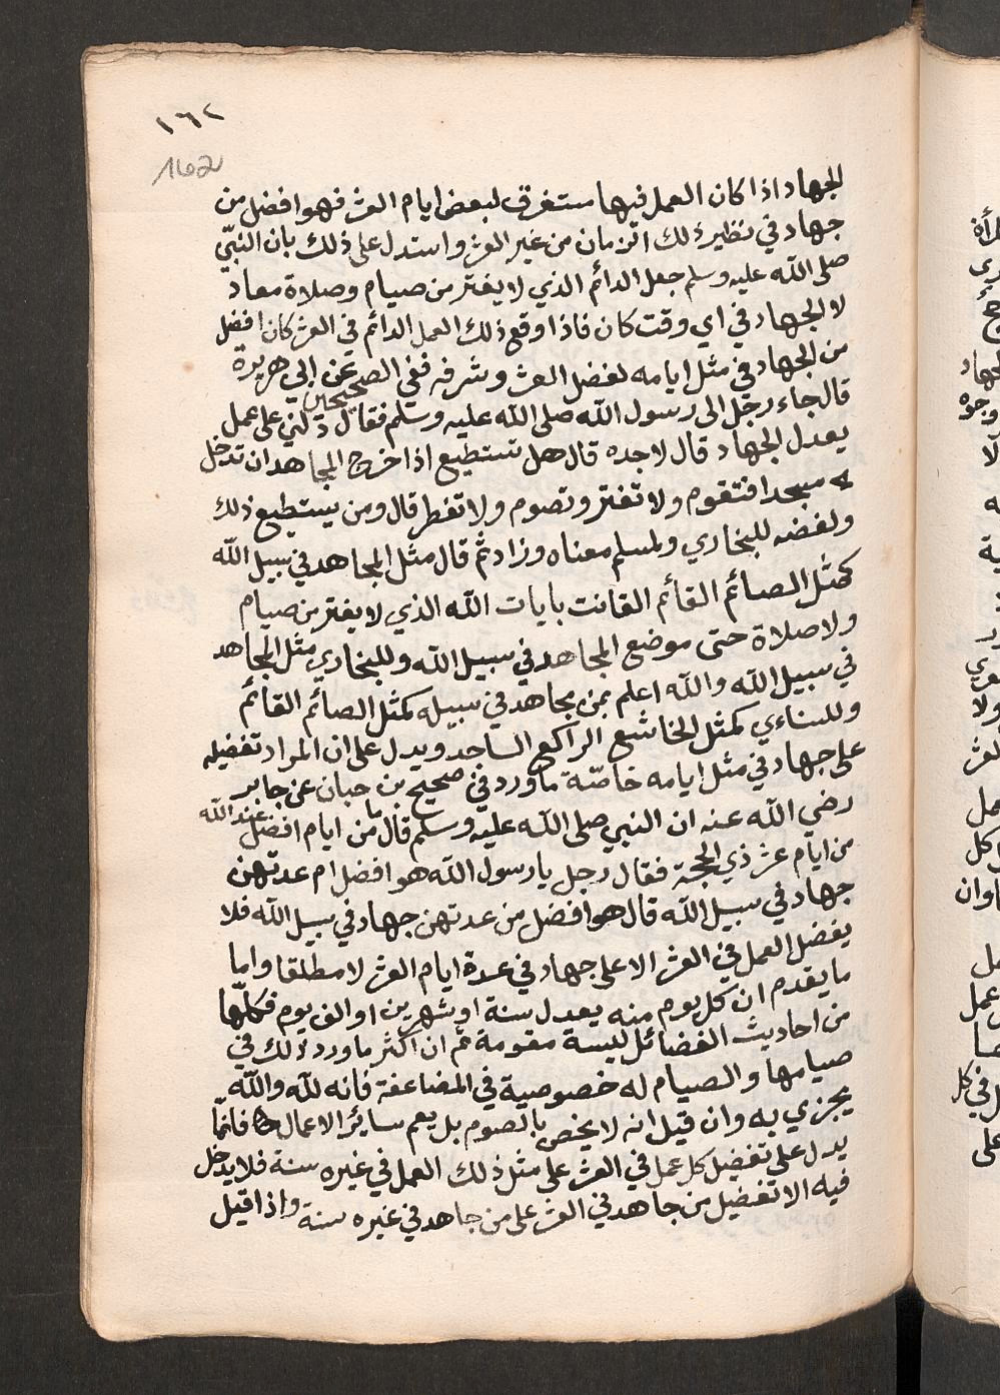 ١٦٢
162
الجهاد اذا كان العمل فيها ستغرق لبعض ايام العشر فهو افضل من
جهاد في نظير ذلك الزمان من غير العشر واستدل على ذلك بان النبيّ
صلى الله عليه وسلم جعل الدائم الذي لا يفتر من صيام وصلاة معاد
لا الجهاد في اي وقت كان فاذا وقع ذلك العمل الدائم في العشر كان افضل
من الجهاد في مثل ايامه لفضل العشر وشرفه ففي الصحيحين عن ابي هريرة
قال جاء رجل الى رسول الله صلى الله عليه وسلم فقال دلني على عمل
يعدل الجهاد قال لا اجده قال هل تستطيع اذا خرج المجاهد ان تدخل
مسجدا فتقوم ولا تفتر وتصوم ولا تفطر قال ومن يستطيع ذلك
ولفضه للبخاري ولمسلم معناه وزاد ثم قال مثل المجاهد في سبيل الله
كمثل الصائم القائم القانت بايات الله الذي لا يفتر من صيام
ولا صلاة حتى موضع المجاهد في سبيل الله وللبخاري مثل المجاهد
في سبيل الله والله اعلم بمن يجاهد في سبيله كمثل الصائم القائم
وللنساءي كمثل الخاشع الراكع الساجد ويدل على ان المراد تفضيله
على جهاد في مثل ايامه خاصّة ما ورد في صحيح بن حبان عن جابر
رضي الله عنه ان النبي صلى الله عليه وسلم قال ما من ايام افضل عند الله
من ايام عشر ذي الحجة فقال رجل يا رسول الله هو افضل ام عدتهن
جهاد في سبيل الله قال هو افضل من عدتهن جهاد في سبيل الله فلا
يفضل العمل في العشر الا على جهاد في عدة ايام العشر لا مطلقا واما
ما يقدم ان كل يوم منه يعدل سنة او شهرين او الف يوم فكلّها
من احاديث الفضائل ليسة مقومة ثم ان اكثر ما ورد ذلك في
صيامها والصيام له خصوصية في المضاعفة فانه لله والله
يجزي به وان قيل انه لا يخص بالصوم بل يعم سائر الاعمال فانمّا
يدل على تفضيل كل عمل في العشر على مثل ذلك العمل في غيره سنة فلا يدخل
فيه الا تفضيل من جاهد في العشر على من جاهد في غيره سنة واذا قيل